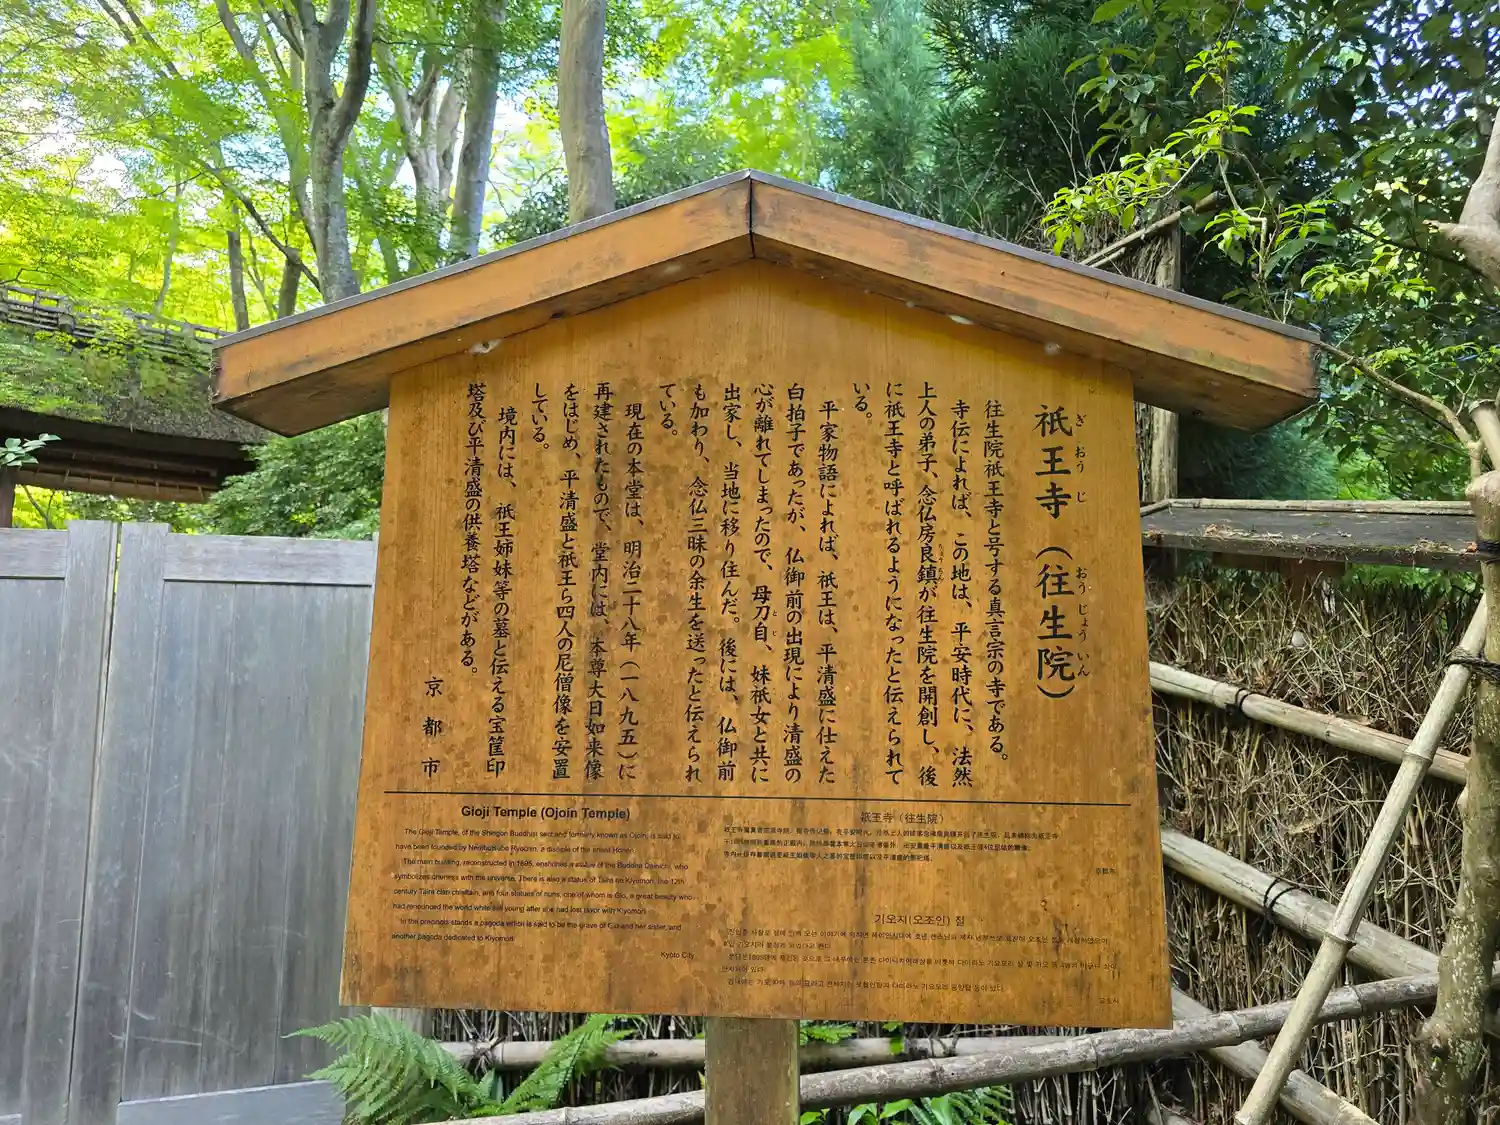 祇王寺（往生院）
ぎおうじ おうじょういん
往生院祇王寺と号する真言宗の寺である。
寺伝によれば、この地は、平安時代に、法然
上人の弟子、念仏房良鎮が往生院を開創し、後
りょうちん
に祇王寺と呼ばれるようになったと伝えられて
いる。
平家物語によれば、祇王は、平清盛に仕えた
白拍子であったが、仏御前の出現により清盛の
心が離れてしまったので、母刀自、妹祇女と共に
とじ
出家し、当地に移り住んだ。後には、仏御前
も加わり、念仏三昧の余生を送ったと伝えられ
ている。
現在の本堂は、明治二十八年（一八九五）に
再建されたもので、堂内には、本尊大日如来像
をはじめ、平清盛と祇王ら四人の尼僧像を安置
している。
境内には、祇王姉妹等の墓と伝える宝筐印
塔及び平清盛の供養塔などがある。
京都市
Gioji Temple (Ojoin Temple)
The Gioji Temple, of the Shingon Buddhist sect and formerly known as Ojoin, is said to
have been founded by Nembutsubo Ryochin, a disciple of the priest Honen.
The main building, reconstructed in 1895, enshrines a statue of the Buddha Dainichi, who
symbolizes oneness with the universe. There is also a statue of Taira no Kiyomori, the 12th
century Taira clan chieftain, and four statues of nuns, one of whom is Gio, a great beauty who
had renounced the world while still young after she had lost favor with Kiyomori.
In the precincts stands a pagoda which is said to be the grave of Gio and her sister, and
another pagoda dedicated to Kiyomori.
Kyoto City
祇王寺（往生院）
京都市
기오지(오조인) 절
교토시